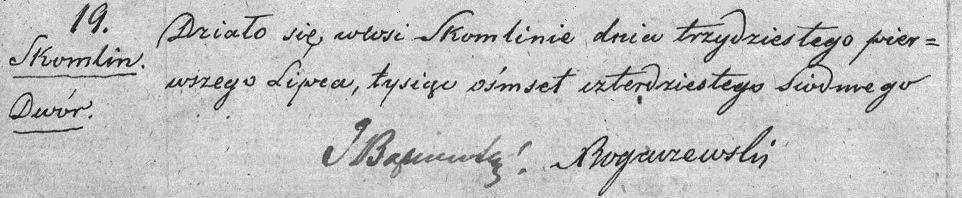 19.
Skomlin.
Dwór.
Działo się wwsi Skomlinie dnia trzydziestego pier=
wszego Lipca, tysiąc ośmset czterdziestego siodmego